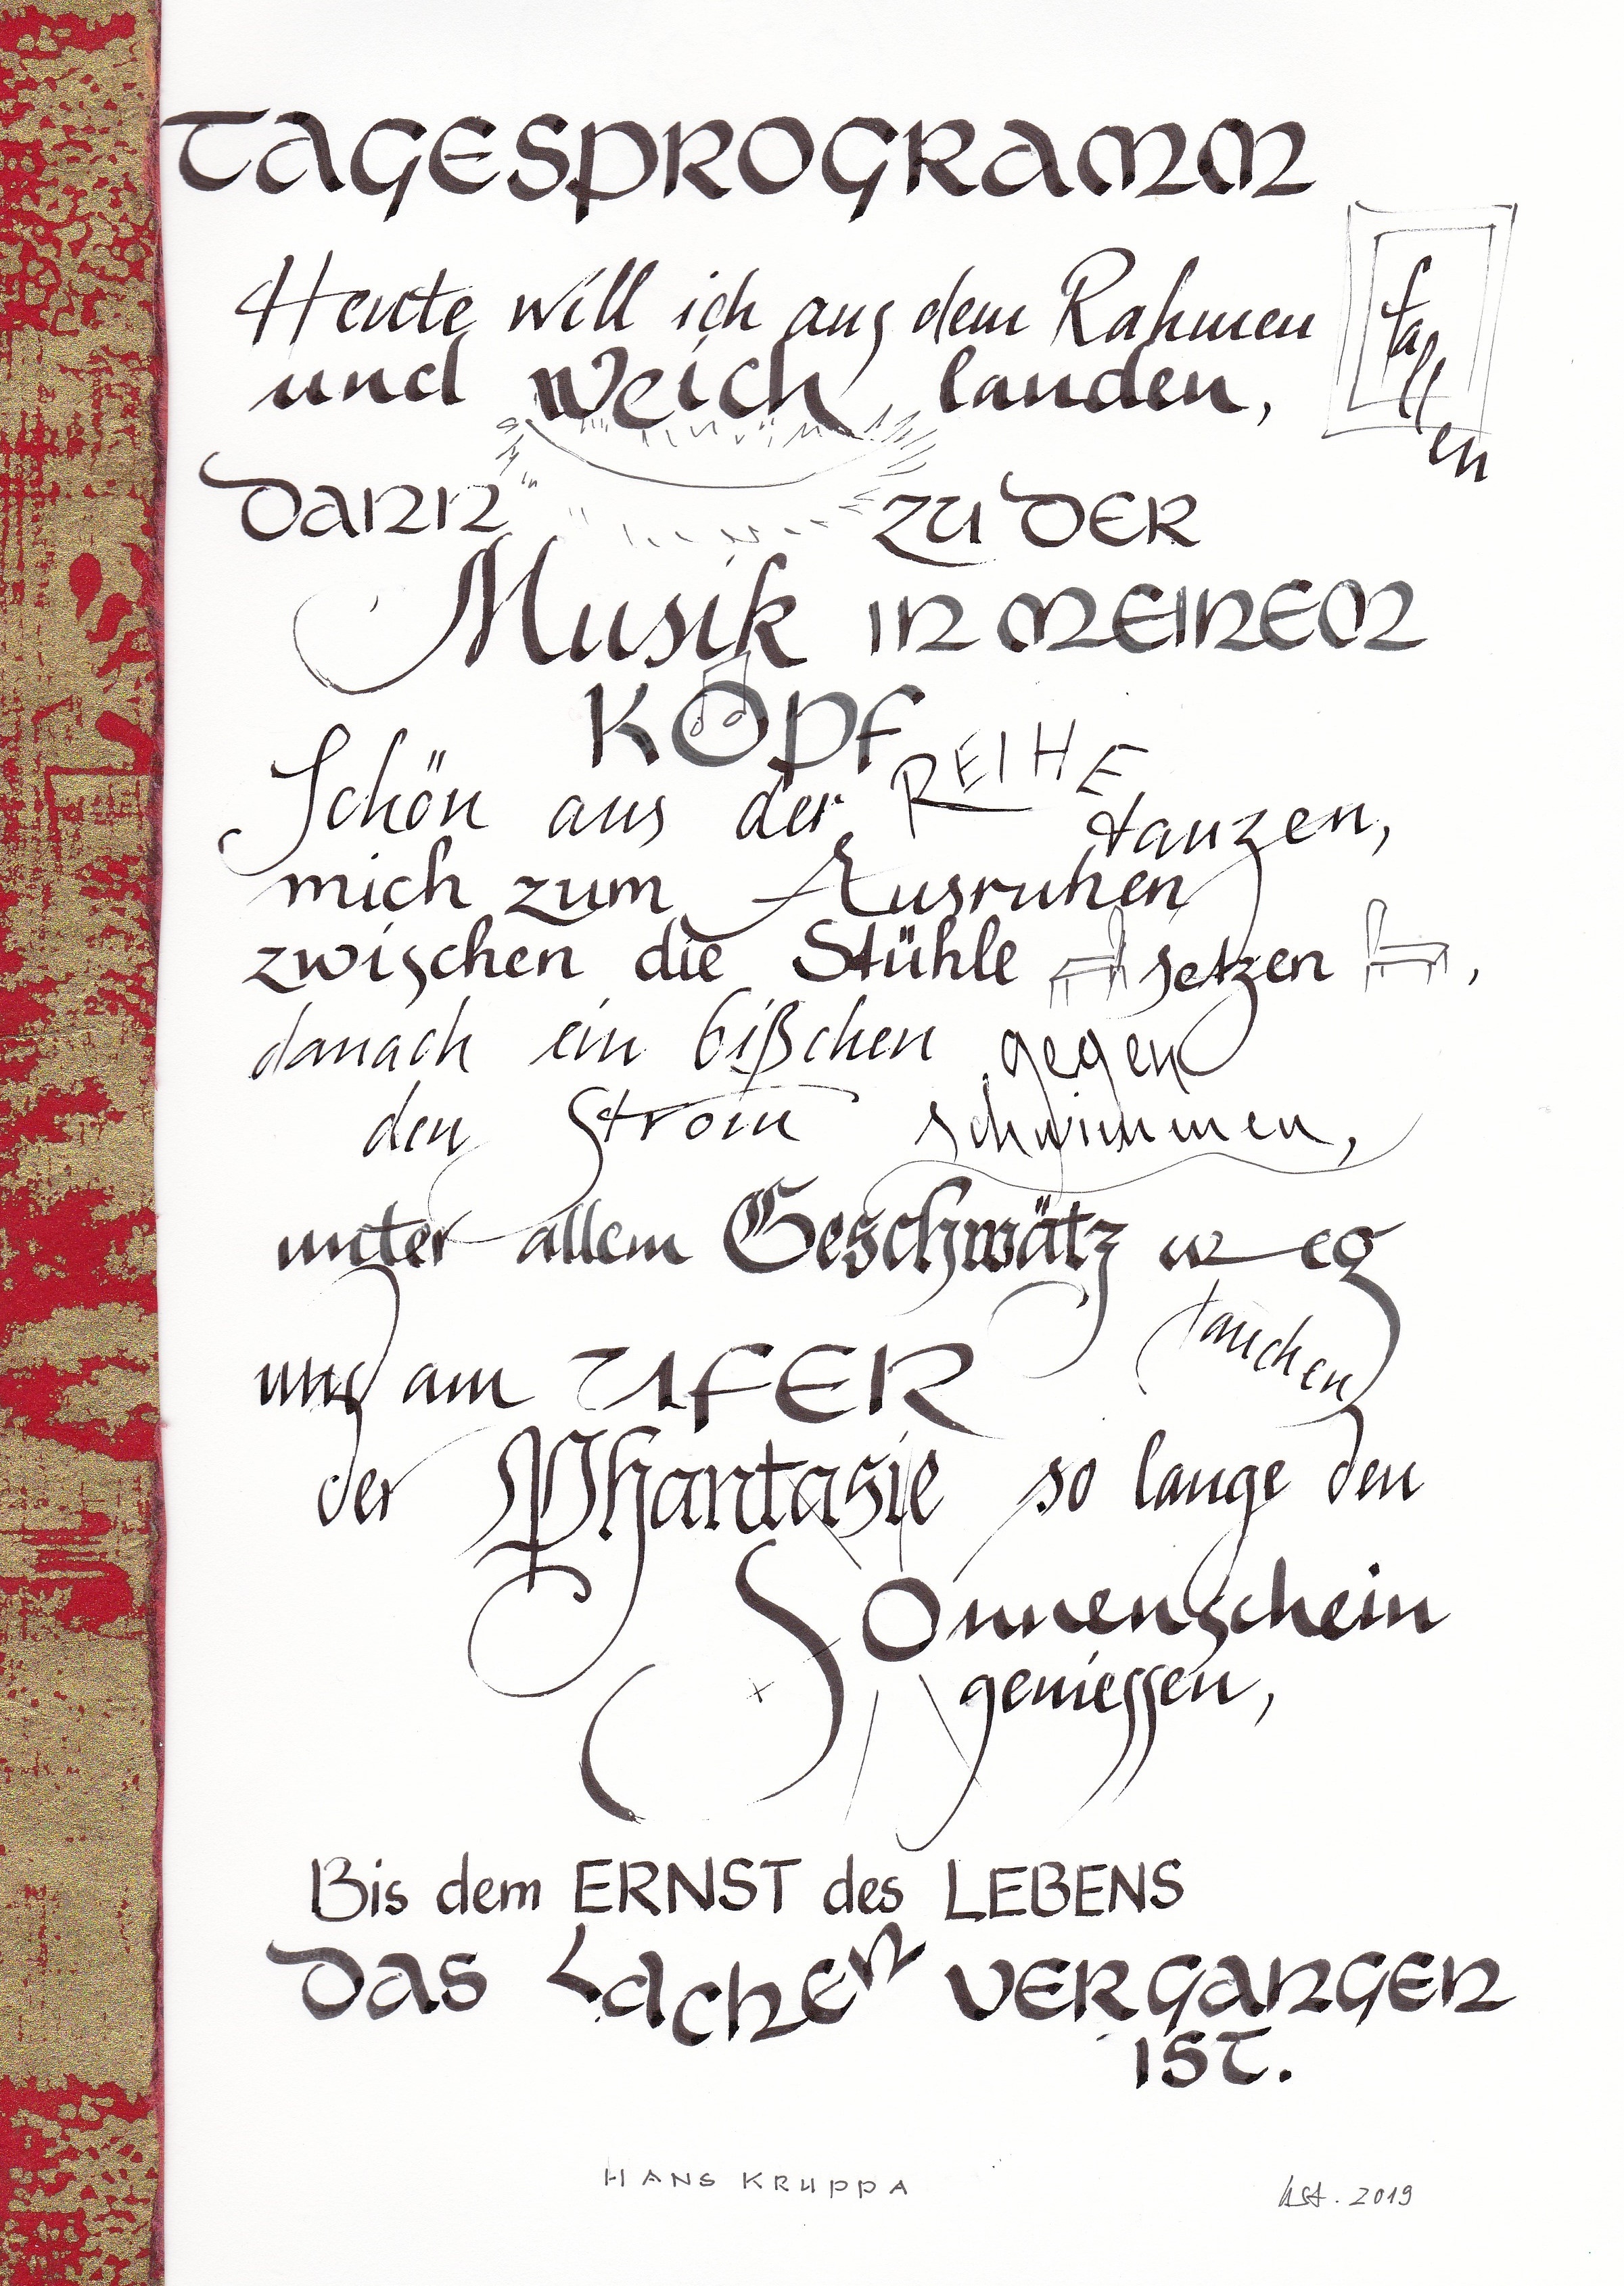 TAGESPROGRAMM
Heute will ich aus dem Rahmen fallen
und weich landen,
DANN ZU DER
Musik IN MEINEM
KOPF
Schön aus der REIHE tanzen,
mich zum Ausruhen
zwischen die Stühle setzen,
danach ein bißchen gegen
den Strom schwimmen,
unter allem Geschwätz weg
tauchen
und am UFER
der Phantasie so lange den
Sonnenschein
geniessen,
Bis dem ERNST des LEBENS
DAS LACHEN VERGANGEN
IST.
HANS KRUPPA
2019